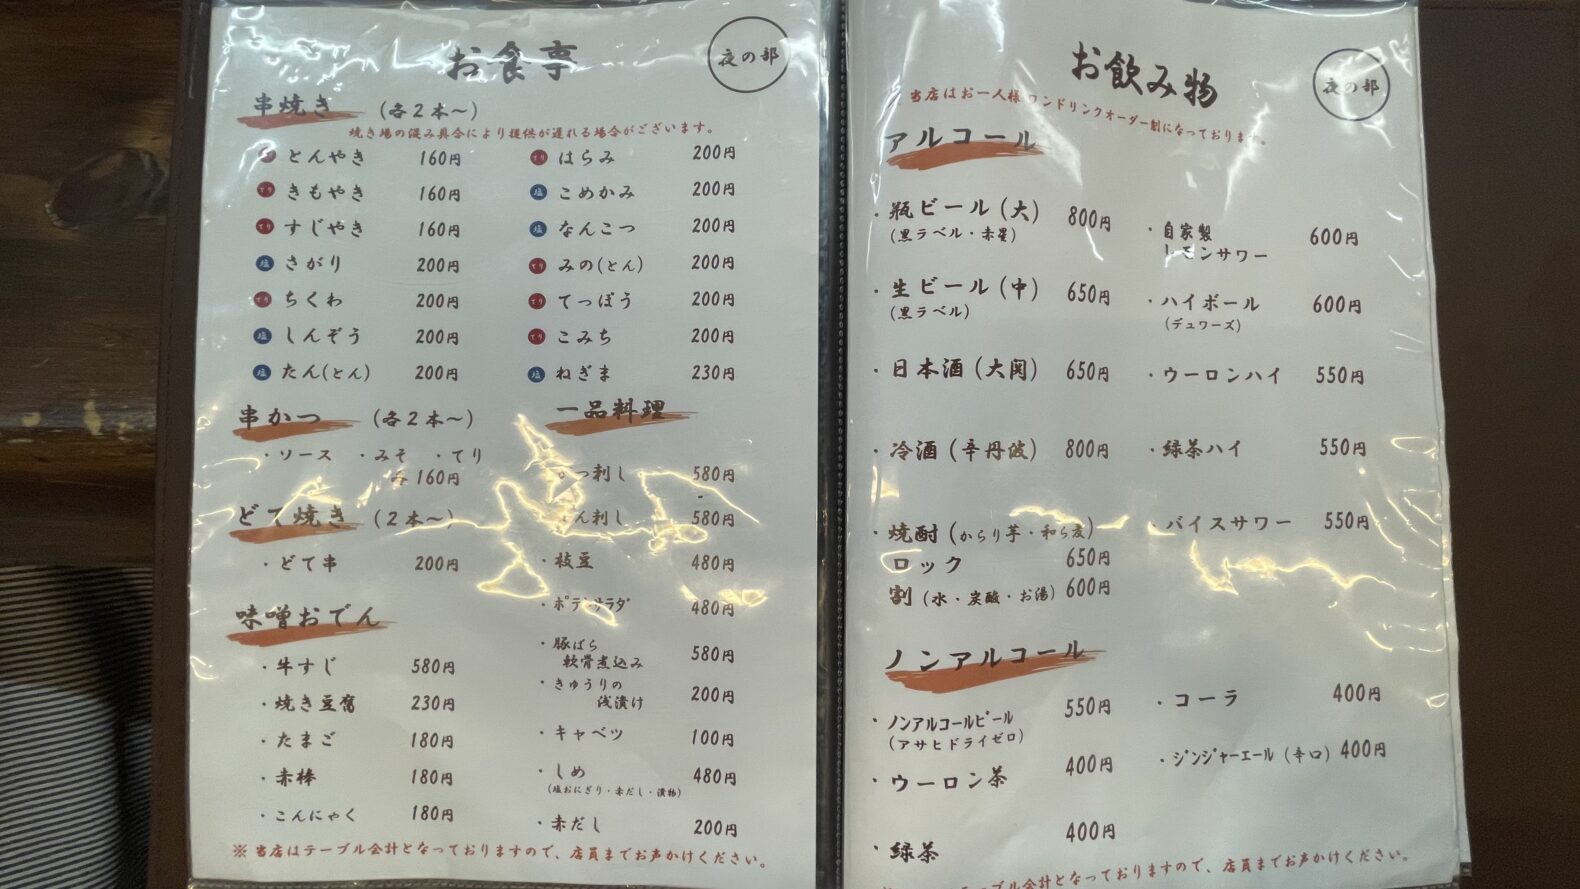 お食亭
夜の部
串焼き (各2本〜)
焼き場の混み具合により提供が遅れる場合がございます。
とんやき 160円
てり きもやき 160円
てり すじやき 160円
塩 さがり 200円
てり ちくわ 200円
塩 しんぞう 200円
塩 たん(とん) 200円
てり はらみ 200円
塩 こめかみ 200円
塩 なんこつ 200円
てり みの(とん) 200円
てり てっぽう 200円
てり こみち 200円
塩 ねぎま 230円
串かつ (各2本〜)
・ソース ・みそ ・てり
160円
どて焼き (2本〜)
・どて串 200円
味噌おでん
・牛すじ 580円
・焼き豆腐 230円
・たまご 180円
・赤棒 180円
・こんにゃく 180円
一品料理
刺し 580円
刺し 580円
・枝豆 480円
・ポテトサラダ 480円
・豚ばら
軟骨煮込み 580円
・きゅうりの
浅漬け 200円
・キャベツ 100円
・しめ 480円
(塩おにぎり・赤だし・漬物)
・赤だし 200円
※ 当店はテーブル会計となっておりますので、店員までお声かけください。
お飲み物
夜の部
当店はお一人様ワンドリンクオーダー制になっております。
アルコール
・瓶ビール(大) 800円
(黒ラベル・赤星)
・生ビール(中) 650円
(黒ラベル)
・日本酒(大関) 650円
・冷酒(辛丹波) 800円
・焼酎(からり芋・和ら麦)
ロック 650円
割(水・炭酸・お湯) 600円
・自家製
レモンサワー 600円
・ハイボール 600円
(デュワーズ)
・ウーロンハイ 550円
・緑茶ハイ 550円
・バイスサワー 550円
ノンアルコール
・ノンアルコールビール 550円
(アサヒドライゼロ)
・ウーロン茶 400円
・緑茶 400円
・コーラ 400円
・ジンジャーエール(辛口) 400円
テーブル会計となっておりますので、店員までお声かけください。